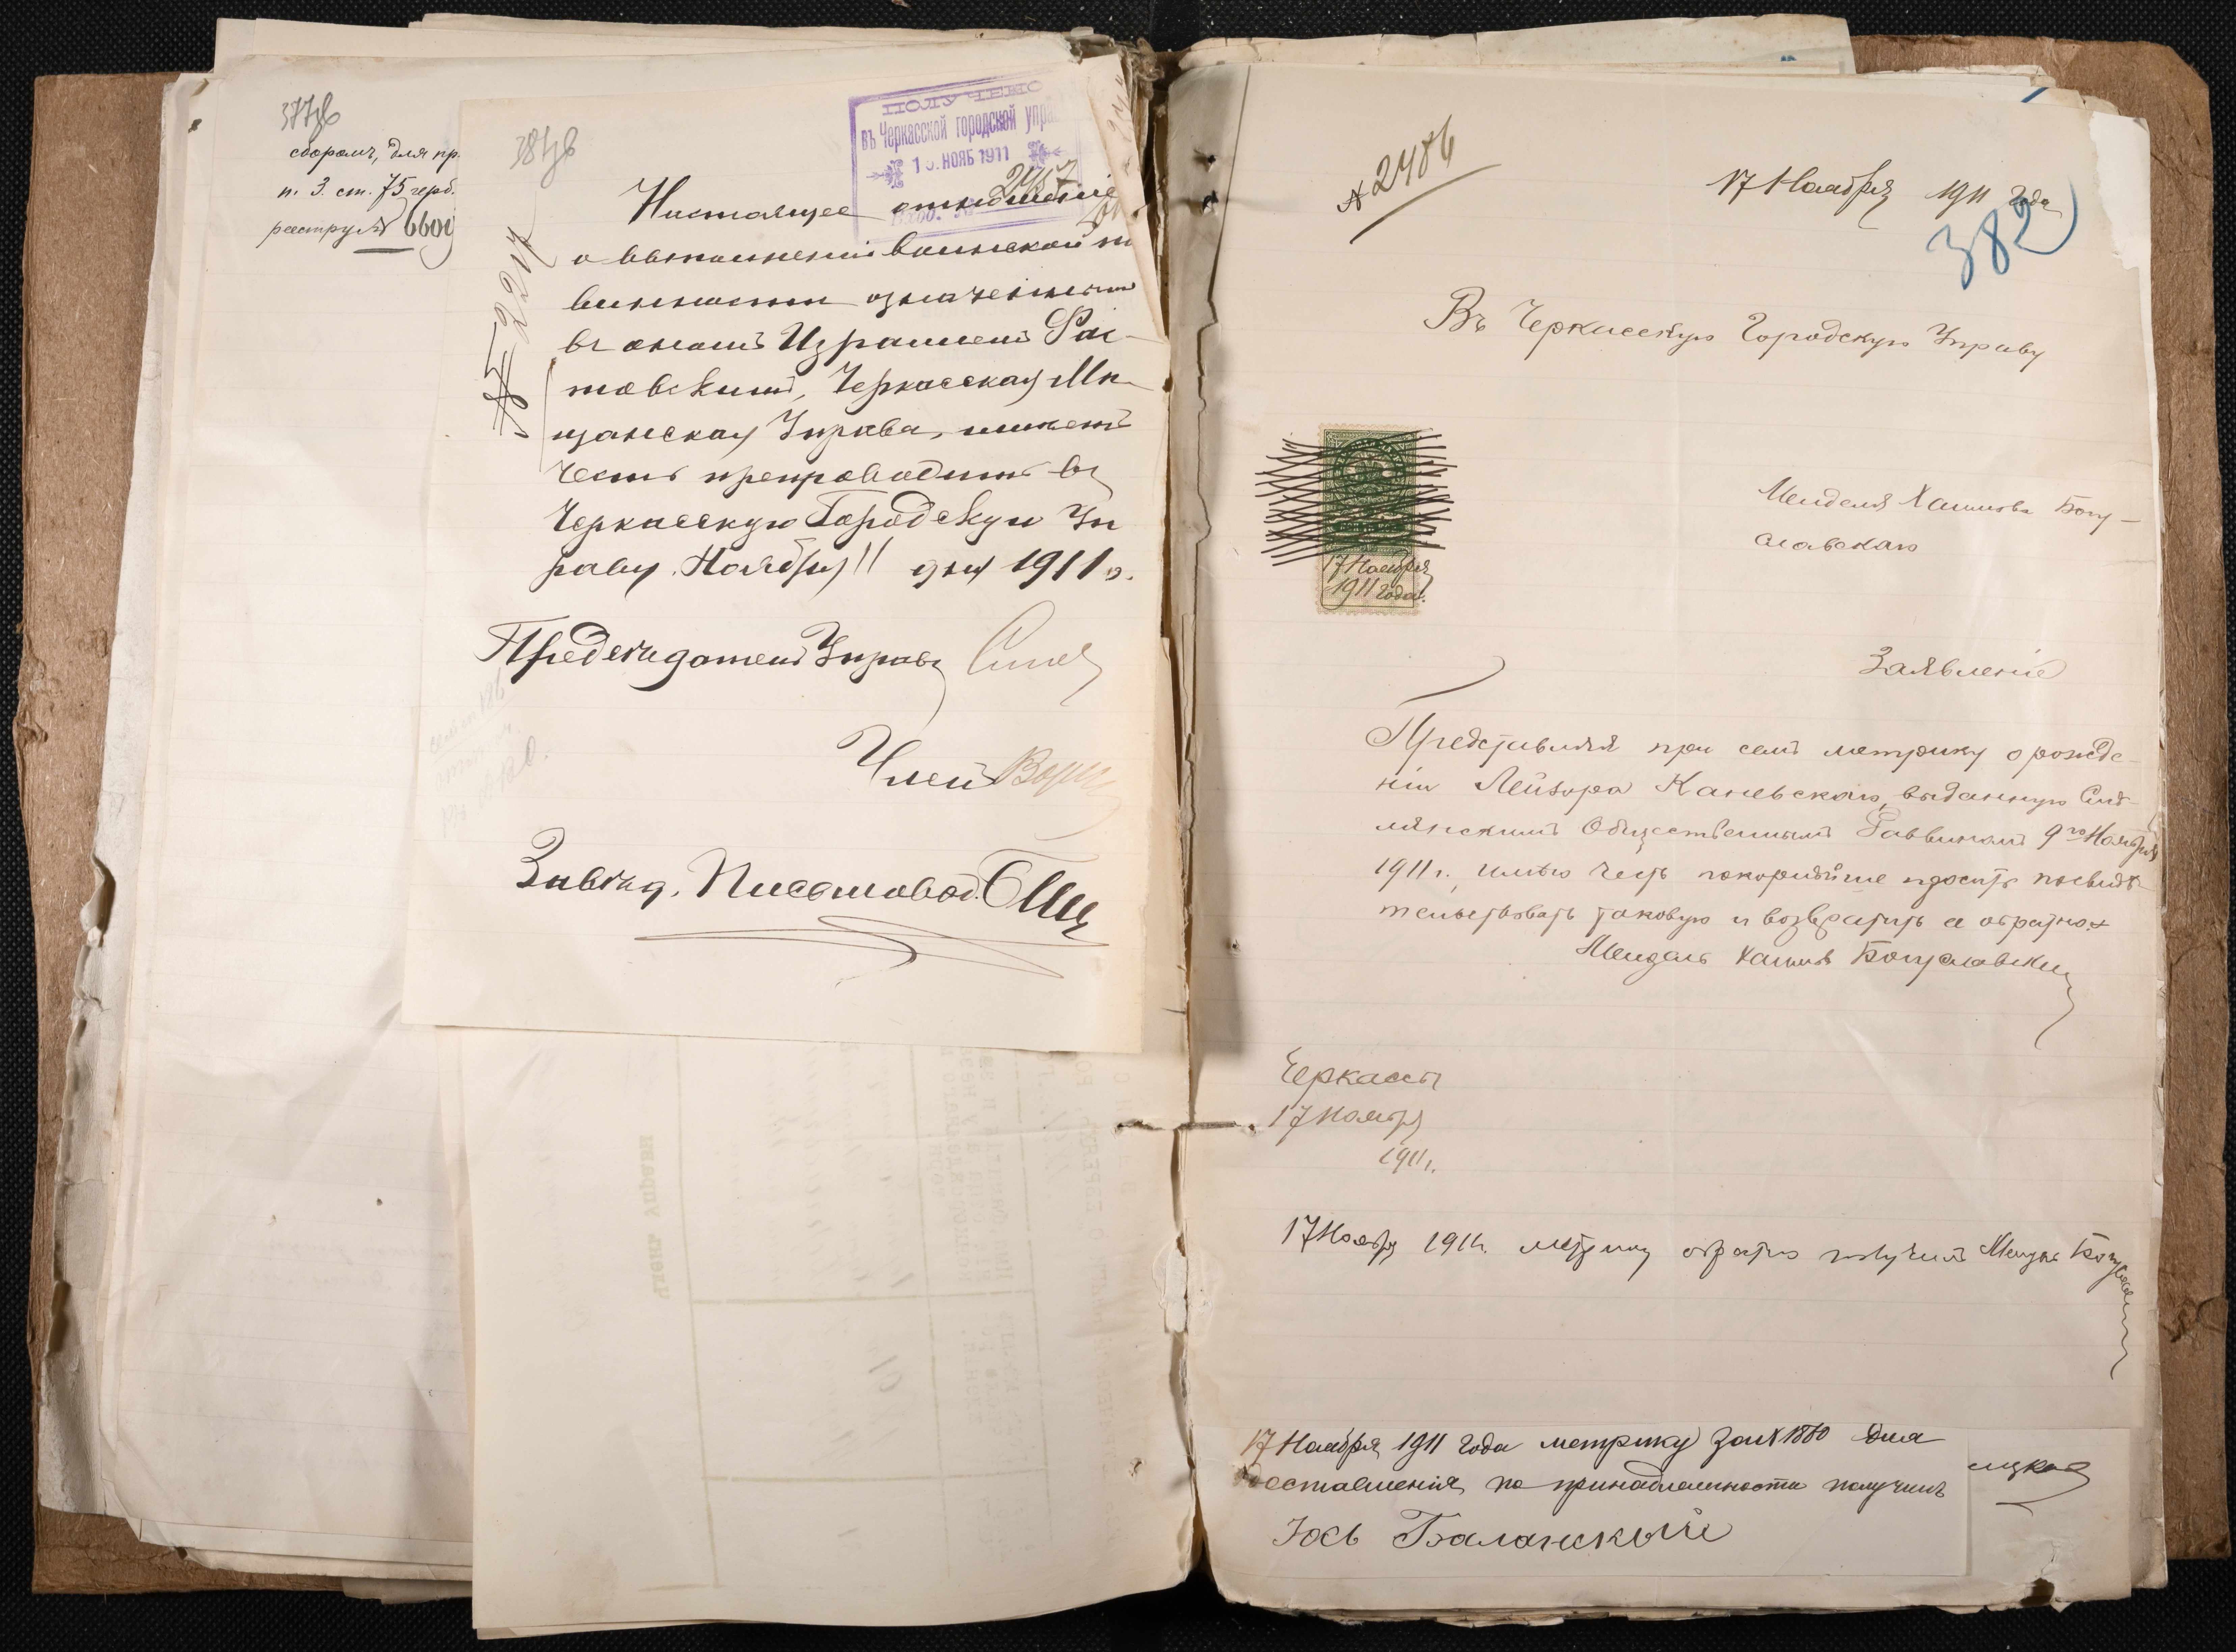 377об
сборомъ, для пр.
п. 3. ст. 75 герб.
реестру № 6601
381об
ПОЛУЧЕНО
въ Черкасской городской упра
НОЯБ 1911
2457
№ 2217
Настоящее
о выполненіи воинской по
винности означеннымъ
въ ономъ Израилемъ Рай-
товскимъ, Черкасская Мѣ-
щанская Управа, имѣетъ
честь препроводить въ
Черкасскую Городскую Уп
раву. Ноября 11 дня 1911 г.
Предсѣдатель Управы
Членъ
Завѣд. Письмовод.
Членъ управы
№ 2486
17 Ноября 1911 года
382
Въ Черкасскую Городскую Управу
17 Ноября
1911 года.
Менделя Хаимова Богу-
славскаго
Заявленіе
Представляя при семъ метрику о рожде-
ніи Лейзора Каневскаго, выданную Смѣ-
лянскимъ Общественнымъ Раввиномъ 9го Ноября
1911 г., имѣю честь покорнѣйше просить посвидѣ-
тельствовать таковую и возвратить ее обратно.
Мендель Хаимовъ Богуславскій
Черкассы
17 Ноября
1911 г.
17 Ноября 1911 г. метрику обратно получилъ Мендель Богуславскій
17 Ноября 1911 года метрику за № 1880 для
доставленія по принадлежности получилъ
Юсь Баланскый